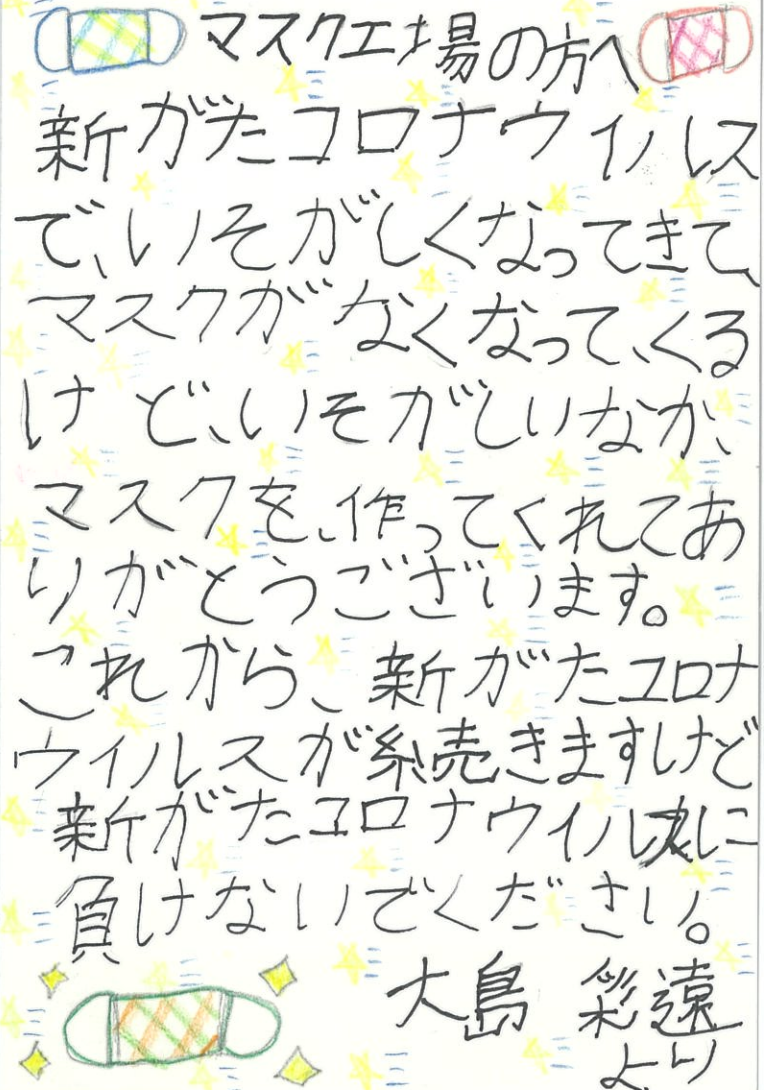 マスク工場の方へ
新がたコロナウィルス
で、いそがしくなってきて、
マスクがなくなって、くる
けど、いそがしいなか、
マスクを、作ってくれてあ
りがとうございます。
これから、新がたコロナ
ウィルスが続きますけど
新がたコロナウィルスに
負けないでください。
大島 彩遠
より